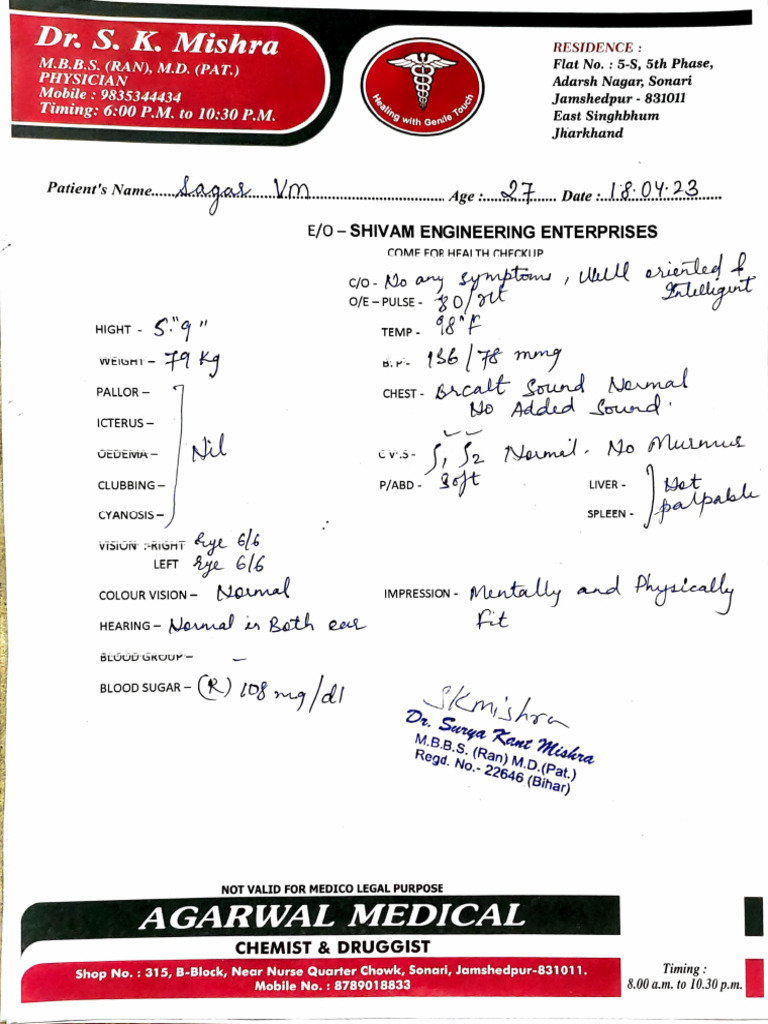 Dr. S. K. Mishra
M.B.B.S. (RAN), M.D. (PAT.)
PHYSICIAN
Mobile : 9835344434
Timing: 6:00 P.M. to 10:30 P.M.
Healing with Gentle Touch
RESIDENCE :
Flat No. : 5-S, 5th Phase,
Adarsh Nagar, Sonari
Jamshedpur - 831011
East Singhbhum
Jharkhand
Patient's Name..... Sagar Vm ..... Age :..... 27 ..... Date :.. 18.04.23
E/O – SHIVAM ENGINEERING ENTERPRISES
COME FOR HEALTH CHECKUP
C/O - No any symptoms, Well oriented & Intelligent
O/E – PULSE - 80/
HIGHT - 5."9"
TEMP - 98°F
WEIGHT – 79 Kg
B.P. - 136/78 mmg
PALLOR –
CHEST - Sound Normal
No Added Sound.
ICTERUS –
OEDEMA – Nil
C V.S - S1, S2 Normal. No Murmur
CLUBBING –
P/ABD - Soft
LIVER - Not palpable
CYANOSIS –
SPLEEN -
VISION :-RIGHT Eye 6/6
LEFT Eye 6/6
COLOUR VISION – Normal
IMPRESSION - Mentally and Physically
Fit
HEARING – Normal in Both ear
BLOOD GROUP – –
BLOOD SUGAR – (R) 108 mg/dl
SKmishra
Dr. Surya Kant Mishra
M.B.B.S. (Ran) M.D.(Pat.)
Regd. No.- 22646 (Bihar)
NOT VALID FOR MEDICO LEGAL PURPOSE
AGARWAL MEDICAL
CHEMIST & DRUGGIST
Shop No. : 315, B-Block, Near Nurse Quarter Chowk, Sonari, Jamshedpur-831011.
Mobile No. : 8789018833
Timing :
8.00 a.m. to 10.30 p.m.